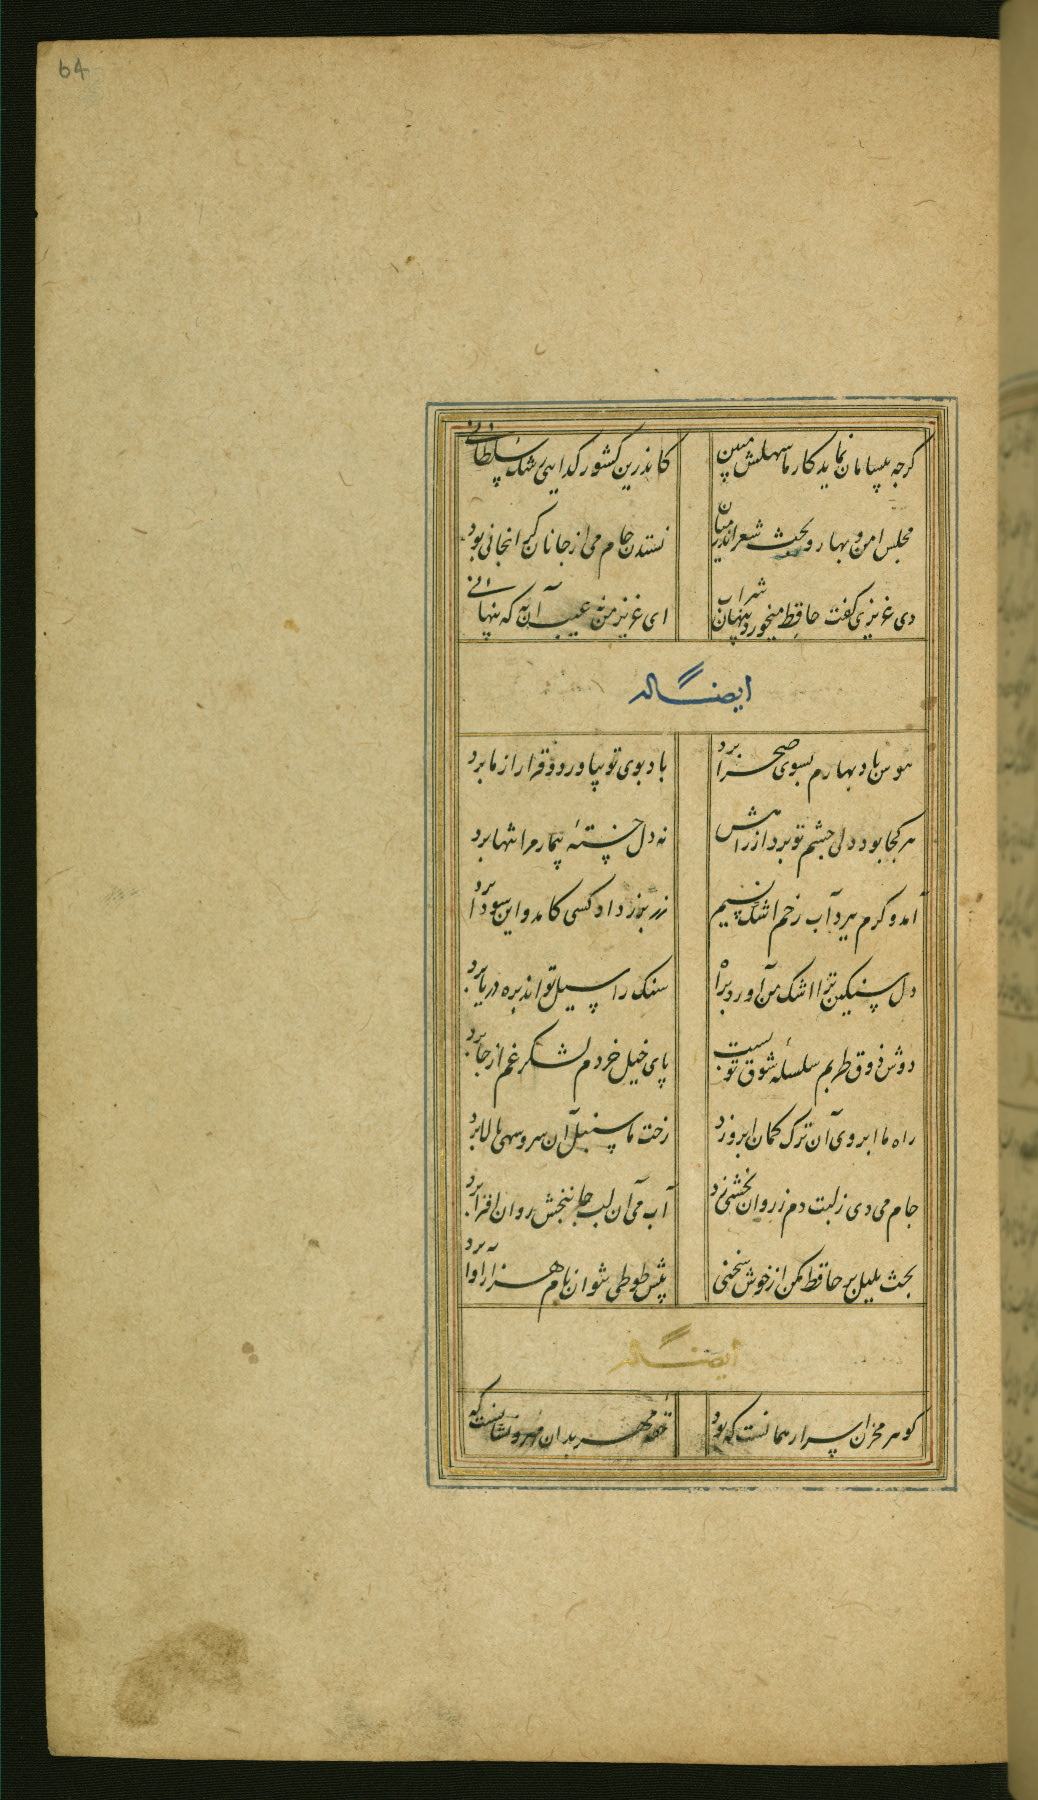 64
کرچه بیسامان نماید کار ما سهلش مبین
کاندرین کشور کدایی رشک سلطانی بود
مجلس امن و بهار و بحث شعر اندر میان
نستدن جام می از جانان کران جانی بود
دی عزیزی کفت حافظ میخورد پنهان شراب
ای عزیز من نه عیب آن به که پنهانی بود
ایضاً له
هوس باد بهارم بسوی صحرا برد
باد بوی تو بیاورد و قرار از ما برد
هر کجا بود دلی چشم تو برد از راهش
نه دل خستهٔ بیمار مرا تنها برد
آمد و کرم ببرد آب رخم اشک چو سیم
زر بزر داد کسی کامد و این سودا برد
دل سنکین ترا اشک من آورد براه
سنک را سیل تواند بره دریا برد
دوش ذوق طربم سلسلهٔ شوق تو بست
پای خیل خردم لشکر غم از جا برد
راه ما ابروی آن ترک کمان ابرو زد
رخت ما سنبل آن سرو سهی بالا برد
جام می دی ز لبت دم ز روان بخشی زد
آب می آن لب جان بخش روان افزا برد
بحث بلبل بر حافظ مکن از خوش سخنی
پیش طوطی نتوان نام هزار آوا برد
ایضاً له
کوهر مخزن اسرار همانست که بود
حقهٔ مهر بدان مهر و نشانست که